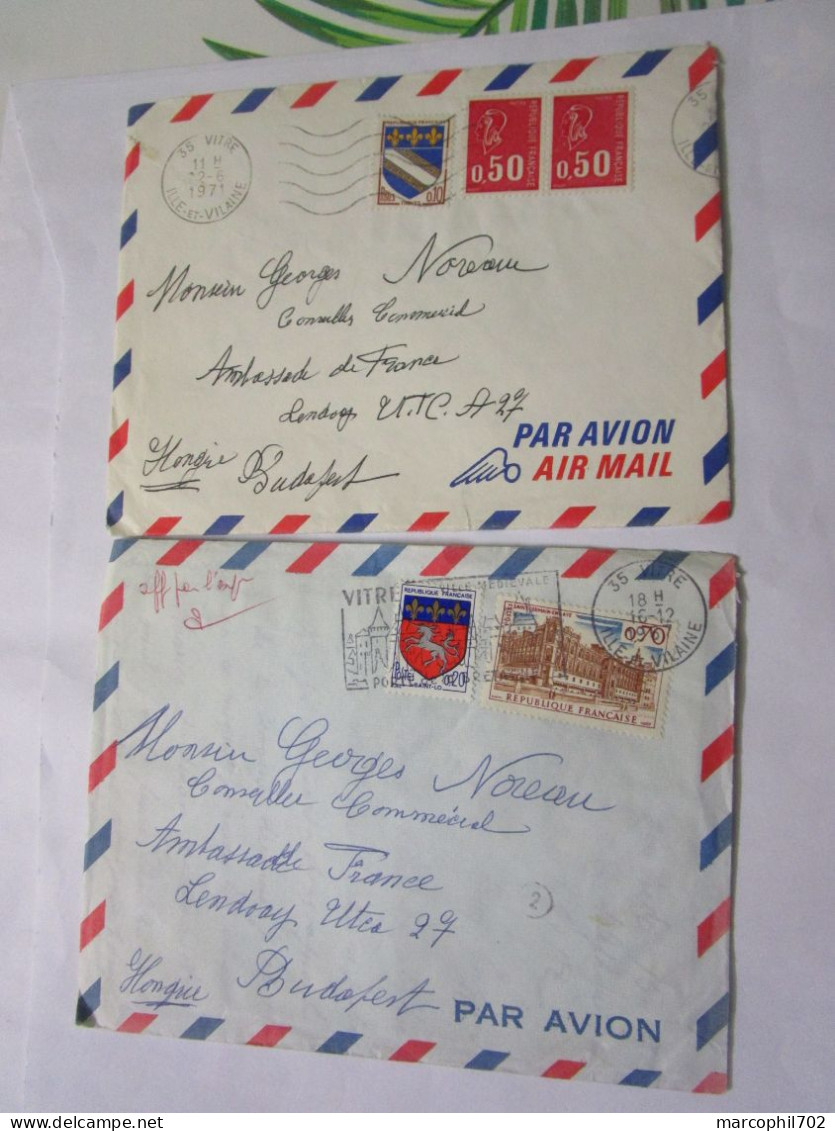 35 VITRE
11 H
12-6
1971
ILLE-ET-VILAINE
0,10
0,50
REPUBLIQUE FRANÇAISE
0,50
REPUBLIQUE FRANÇAISE
35
Monsieur Georges Noreau
Conseiller Commercial
Ambassade de France
Lendvay U.T.C. A 27
Hongrie Budapest
PAR AVION
AIR MAIL
VITRE VILLE MEDIEVALE
REPUBLIQUE FRANÇAISE
0,20
SAINT-LO
SAINT-GERMAIN-EN-LAYE
0,70
REPUBLIQUE FRANÇAISE
35 VITRE
18 H
16-12
ILLE-ET-VILAINE
Monsieur Georges Noreau
Conseiller Commercial
Ambassade de France
Lendvay Utca 27
2
Hongrie Budapest
PAR AVION
marcophil702